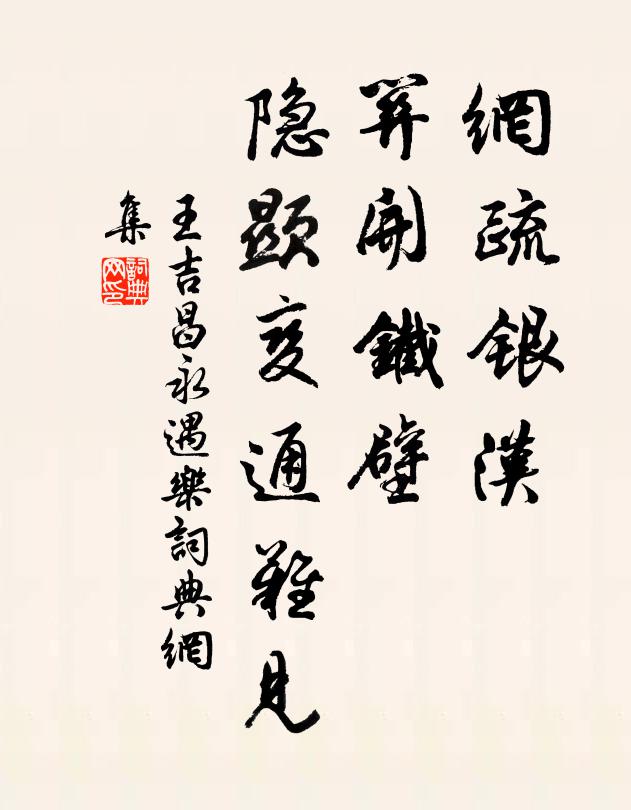 網疏銀漢
羿開鐵壁
隐顯变通難見
王吉昌永遇樂詞典網
集
詞典
网印